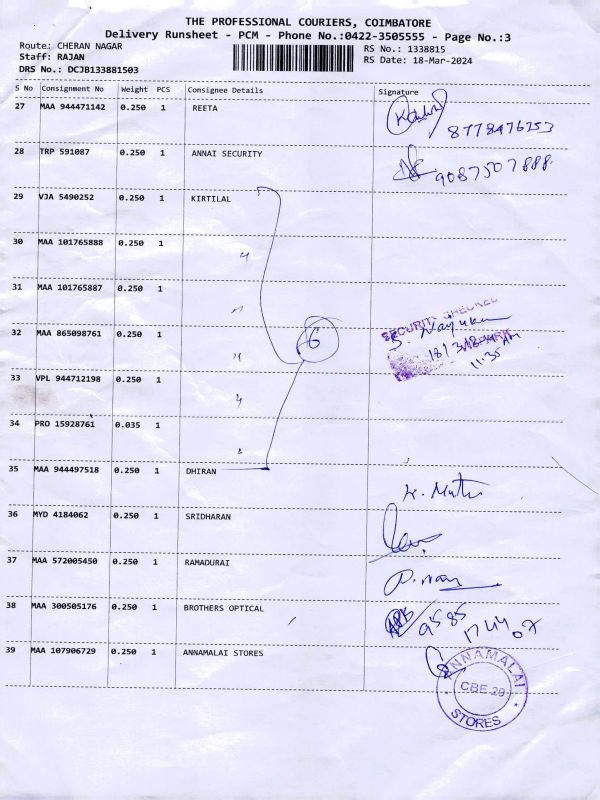 THE PROFESSIONAL COURIERS, COIMBATORE
Delivery Runsheet - PCM - Phone No.:0422-3505555 - Page No.:3
Route: CHERAN NAGAR RS No.: 1338815
Staff: RAJAN RS Date: 18-Mar-2024
DRS No.: DCJB133881503
S No Consignment No Weight PCS Consignee Details Signature
27 MAA 944471142 0.250 1 REETA
8778476253
28 TRP 591087 0.250 1 ANNAI SECURITY
9087507888
29 VJA 5490252 0.250 1 KIRTILAL
30 MAA 101765888 0.250 1
31 MAA 101765887 0.250 1
SECURITY CHECKED
32 MAA 865098761 0.250 1 6
11:35 AM
33 VPL 944712198 0.250 1
34 PRO 15928761 0.035 1
35 MAA 944497518 0.250 1 DHIRAN
K. Muthu
36 MYD 4184062 0.250 1 SRIDHARAN
37 MAA 572005450 0.250 1 RAMADURAI
38 MAA 300505176 0.250 1 BROTHERS OPTICAL
9585
174407
39 MAA 107906729 0.250 1 ANNAMALAI STORES
ANNAMALAI
CBE 29
STORES